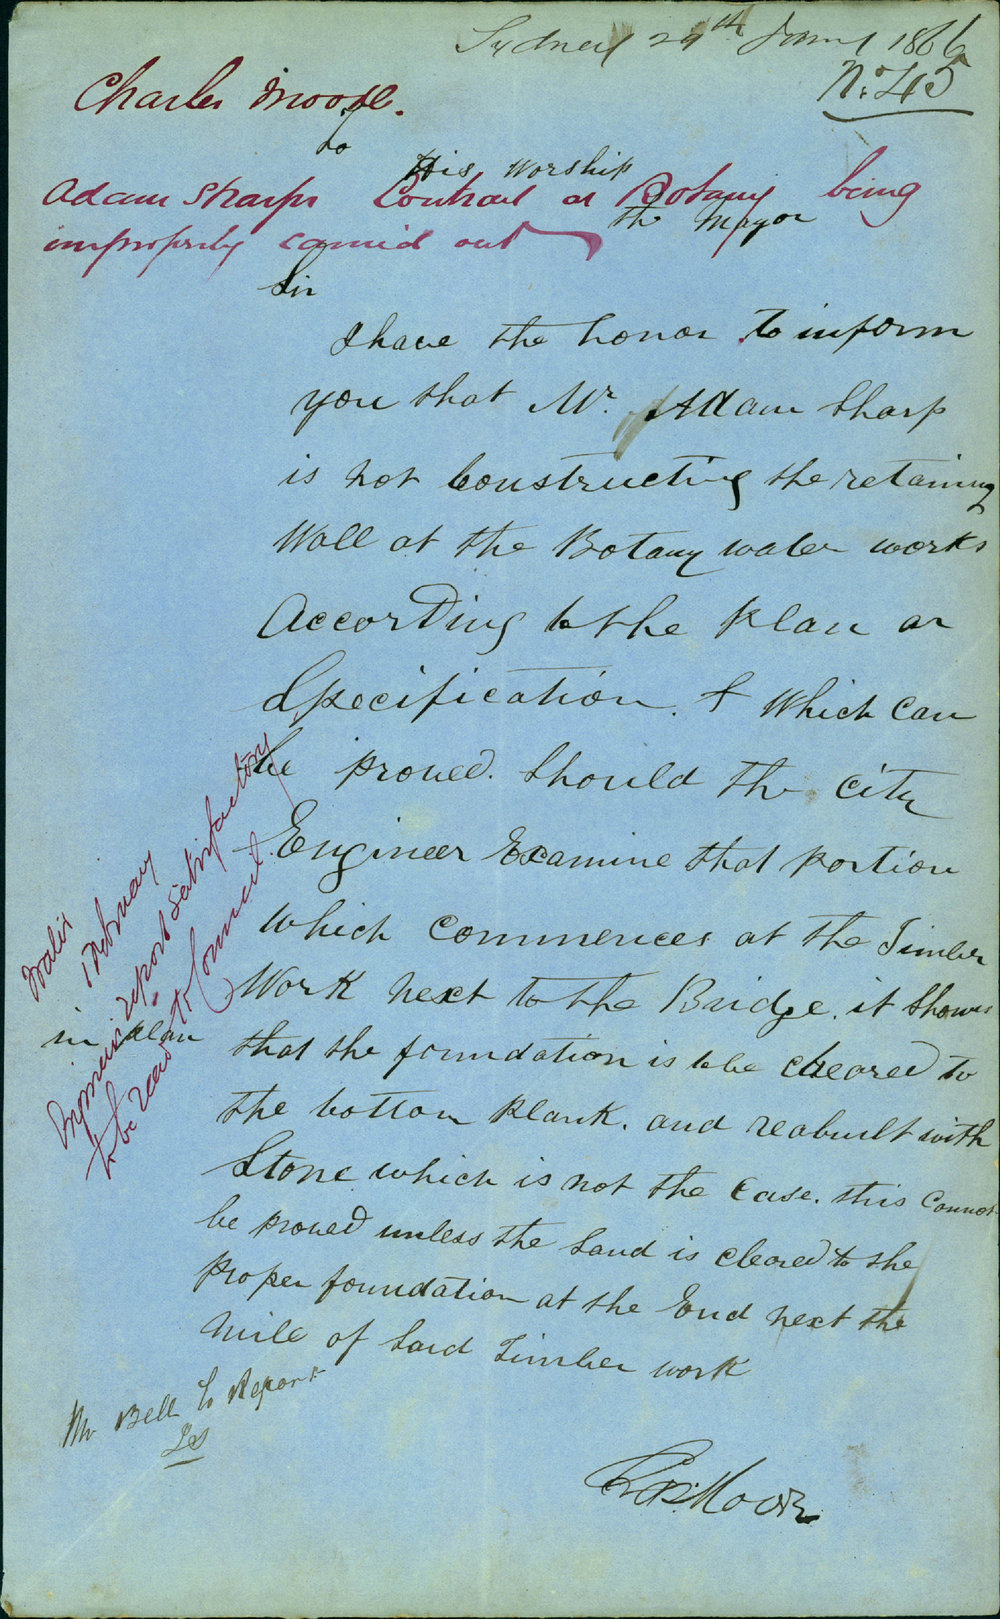 Sydney 29th Jany 1866
No. 45
Charles Moore.
to
His Worship
the Mayor
Adam Sharps Contract at Botany being
improperly carried out
Sir
I have the honor to inform
you that Mr. Adam Sharp
is not Constructing the retaining
Wall at the Botany water works
According to the Plan or
Specification. & Which Can
be proved. Should the City
Engineer Examine that portion
which Commences at the Timber
Work next to the Bridge. it Shows
in plan
that the foundation is to be cleared to
the bottom Plank. and reabuilt with
Stone which is not the Case. this Cannot
be proved unless the Sand is cleared to the
proper foundation at the End next the
Mile of Said Timber work
Chas. Moore
Mr Bell to Report
1 February
Engineers report satisfactory
to be read to Council